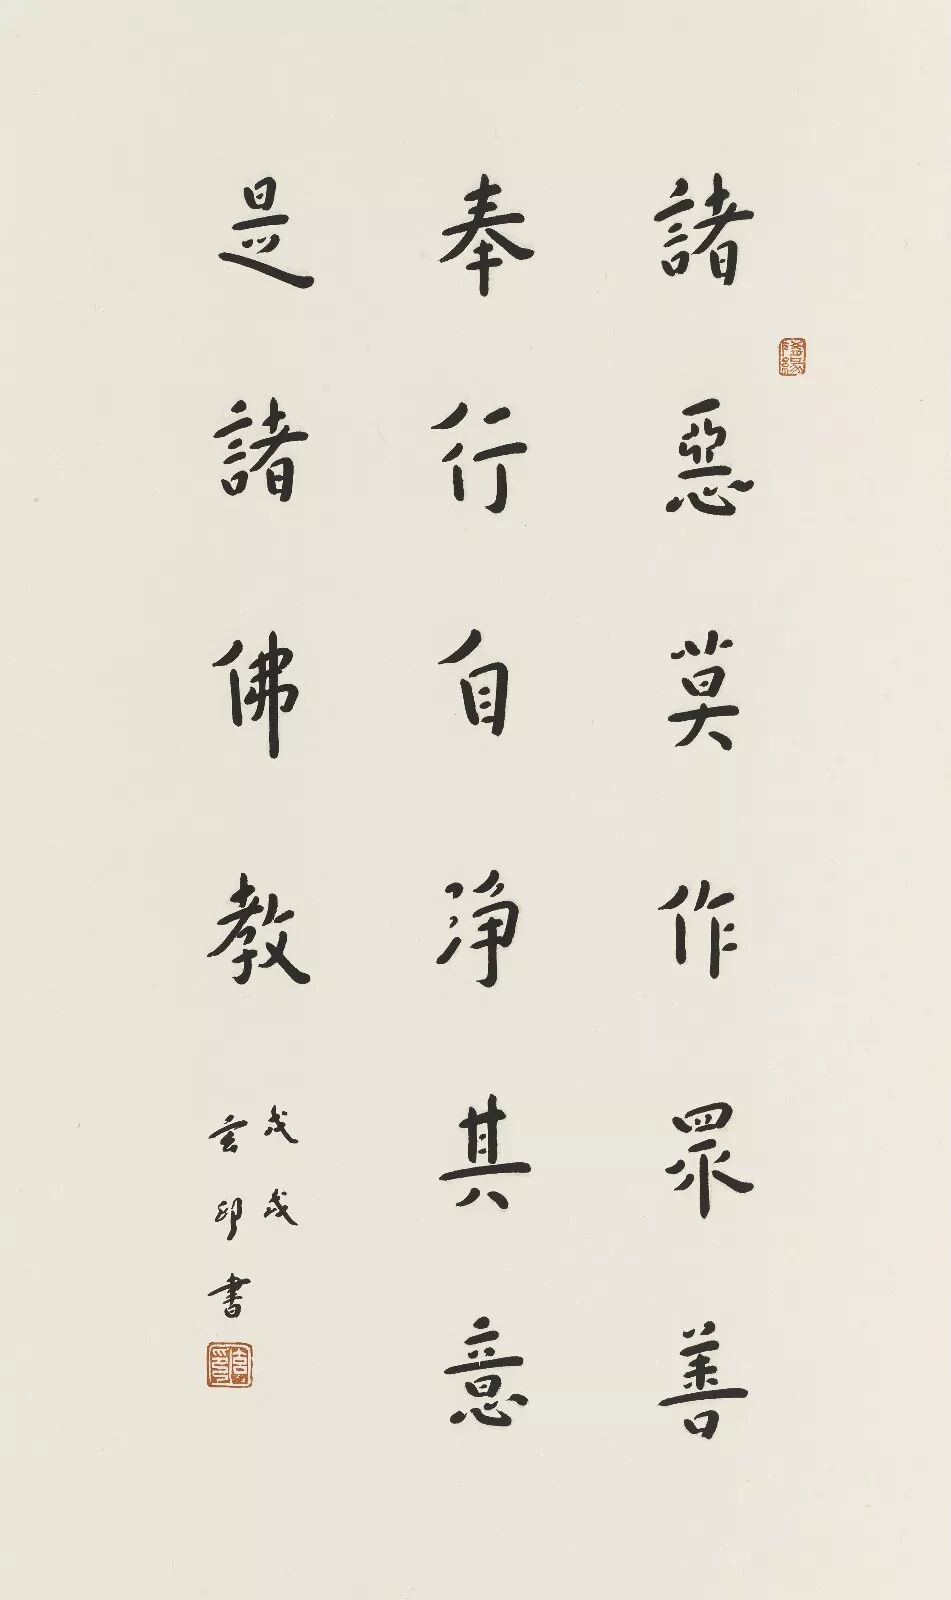 諸惡莫作眾善
奉行自淨其意
是諸佛教
戊戌
玄印書
隨緣